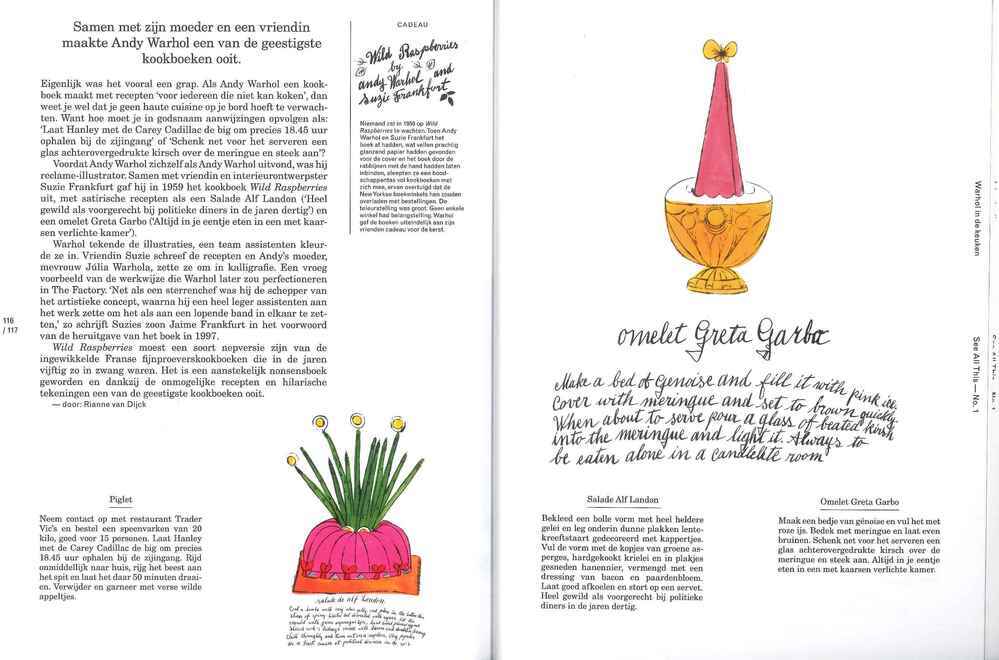 Samen met zijn moeder en een vriendin
maakte Andy Warhol een van de geestigste
kookboeken ooit.
Eigenlijk was het vooral een grap. Als Andy Warhol een kook-
boek maakt met recepten ‘voor iedereen die niet kan koken’, dan
weet je wel dat je geen haute cuisine op je bord hoeft te verwach-
ten. Want hoe moet je in godsnaam aanwijzingen opvolgen als:
‘Laat Hanley met de Carey Cadillac de big om precies 18.45 uur
ophalen bij de zijingang’ of ‘Schenk net voor het serveren een
glas achterovergedrukte kirsch over de meringue en steek aan’?
Voordat Andy Warhol zichzelf als Andy Warhol uitvond, was hij
reclame-illustrator. Samen met vriendin en interieurontwerpster
Suzie Frankfurt gaf hij in 1959 het kookboek Wild Raspberries
uit, met satirische recepten als een Salade Alf Landon (‘Heel
gewild als voorgerecht bij politieke diners in de jaren dertig’) en
een omelet Greta Garbo (‘Altijd in je eentje eten in een met kaar-
sen verlichte kamer’).
Warhol tekende de illustraties, een team assistenten kleur-
de ze in. Vriendin Suzie schreef de recepten en Andy’s moeder,
mevrouw Júlia Warhola, zette ze om in kalligrafie. Een vroeg
voorbeeld van de werkwijze die Warhol later zou perfectioneren
in The Factory. ‘Net als een sterrenchef was hij de schepper van
het artistieke concept, waarna hij een heel leger assistenten aan
het werk zette om het als aan een lopende band in elkaar te zet-
ten,’ zo schrijft Suzies zoon Jaime Frankfurt in het voorwoord
van de heruitgave van het boek in 1997.
Wild Raspberries moest een soort nepversie zijn van de
ingewikkelde Franse fijnproeverskookboeken die in de jaren
vijftig zo in zwang waren. Het is een aanstekelijk nonsensboek
geworden en dankzij de onmogelijke recepten en hilarische
tekeningen een van de geestigste kookboeken ooit.
— door: Rianne van Dijck
CADEAU
Wild Raspberries
by
andy Warhol and
Suzie Frankfurt
Niemand zat in 1959 op Wild
Raspberries te wachten. Toen Andy
Warhol en Suzie Frankfurt het
boek af hadden, wat vellen prachtig
glanzend papier hadden gevonden
voor de cover en het boek door de
rabbijnen met de hand hadden laten
inbinden, sleepten ze een bood-
schappentas vol kookboeken met
zich mee, ervan overtuigd dat de
New Yorkse boekwinkels hen zouden
overladen met bestellingen. De
teleurstelling was groot. Geen enkele
winkel had belangstelling. Warhol
gaf de boeken uiteindelijk aan zijn
vrienden cadeau voor de kerst.
116
/ 117
Piglet
Neem contact op met restaurant Trader
Vic’s en bestel een speenvarken van 20
kilo, goed voor 15 personen. Laat Hanley
met de Carey Cadillac de big om precies
18.45 uur ophalen bij de zijingang. Rijd
onmiddellijk naar huis, rijg het beest aan
het spit en laat het daar 50 minuten draai-
en. Verwijder en garneer met verse wilde
appeltjes.
salade de alf landon
omelet Greta Garbo
Make a bed of Genoise and fill it with pink ice.
Cover with meringue and set to brown quickly.
When about to serve pour a glass of beated kirsh
into the meringue and light it. Always to
be eaten alone in a candlelite room
Salade Alf Landon
Bekleed een bolle vorm met heel heldere
gelei en leg onderin dunne plakken lente-
kreeftstaart gedecoreerd met kappertjes.
Vul de vorm met de kopjes van groene as-
perges, hardgekookt krielei en in plakjes
gesneden hanennier, vermengd met een
dressing van bacon en paardenbloem.
Laat goed afkoelen en stort op een servet.
Heel gewild als voorgerecht bij politieke
diners in de jaren dertig.
Omelet Greta Garbo
Maak een bedje van génoise en vul het met
roze ijs. Bedek met meringue en laat even
bruinen. Schenk net voor het serveren een
glas achterovergedrukte kirsch over de
meringue en steek aan. Altijd in je eentje
eten in een met kaarsen verlichte kamer.
Warhol in de keuken
See All This — No. 1